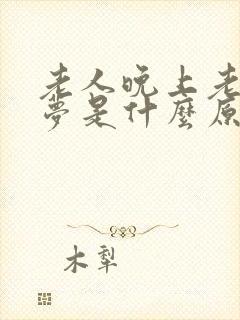 老人晚上老
夢是什麼原
木犁